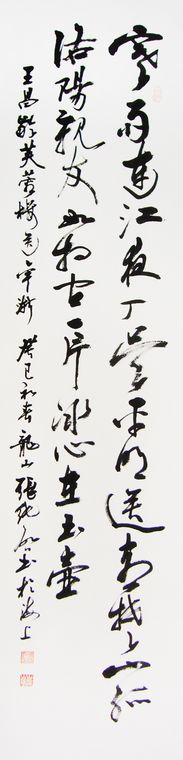 寒雨連江夜入吳平明送客楚山孤
洛陽親友如相問一片冰心在玉壺
王昌齡芙蓉樓送辛漸 癸巳初春 龍山張 書於海上